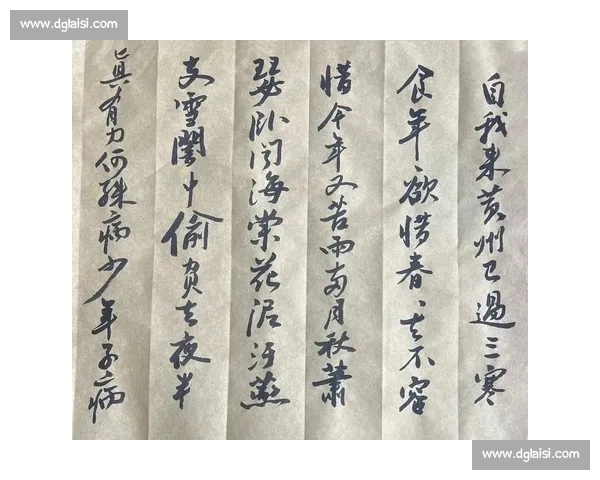 www.dglaisi.com
自我来黄州已過三寒
食年欲惜春、去不容
惜今年又苦雨两月秋蕭
瑟卧闻海棠花泥汙燕
支雪闇中偷負去夜半
真有力何殊病少年子病
www.dglaisi.com